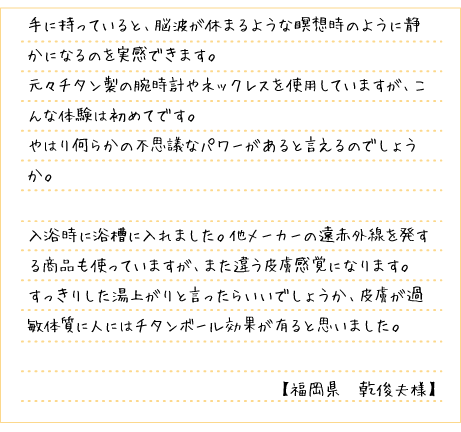 手に持っていると、脳波が休まるような瞑想時のように静
かになるのを実感できます。
元々チタン製の腕時計やネックレスを使用していますが、こ
んな体験は初めてです。
やはり何らかの不思議なパワーがあると言えるのでしょう
か。
入浴時に浴槽に入れました。他メーカーの遠赤外線を発す
る商品も使っていますが、また違う皮膚感覚になります。
すっきりした湯上がりと言ったらいいでしょうか、皮膚が過
敏体質に人にはチタンボール効果が有ると思いました。
【福岡県　乾俊夫様】